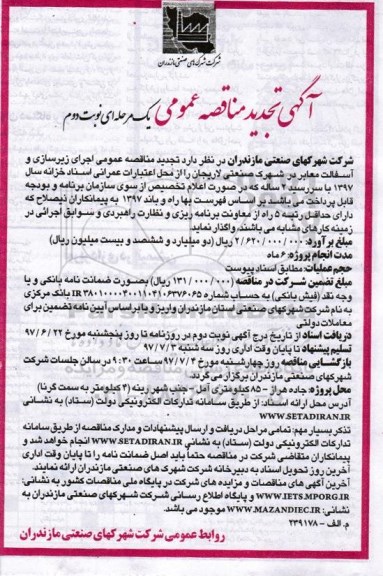 شرکت شهرک‌های صنعتی مازندران
آگهی تجدید مناقصه عمومی یک مرحله‌ای نوبت دوم
شرکت شهرکهای صنعتی مازندران در نظر دارد تجدید مناقصه عمومی اجرای زیرسازی و
آسفالت معابر در شهرک صنعتی لاریجان را از محل اعتبارات عمرانی اسناد خزانه سال
۱۳۹۷ با سررسید ۲ ساله که در صورت اعلام تخصیص از سوی سازمان برنامه و بودجه
قابل پرداخت می باشد بر اساس فهرست بها راه و باند ۱۳۹۷ به پیمانکاران ذیصلاح که
دارای حداقل رتبه ۵ راه از معاونت برنامه ریزی و نظارت راهبردی و سوابق اجرائی در
زمینه کارهای مشابه می باشند، واگذار نماید
مبلغ برآورد: ۲/۶۲۰/۰۰۰/۰۰۰ ریال (دو میلیارد و ششصد و بیست میلیون ریال)
مدت انجام پروژه: ۶ ماه
حجم عملیات: مطابق اسناد پیوست
مبلغ تضمین شرکت در مناقصه (۱۳۱/۰۰۰/۰۰۰ ریال) بصورت ضمانت نامه بانکی و یا
وجه نقد (فیش بانکی) به حساب شماره بانک مرکزی
به نام شرکت شهرکهای صنعتی استان مازندران واریز و یا براساس آیین نامه تضمین برای
معاملات دولتی
دریافت اسناد از تاریخ درج آگهی نوبت دوم در روزنامه تا روز پنجشنبه مورخ ۹۷/۶/۲۲
تسلیم پیشنهاد تا پایان وقت اداری روز سه شنبه ۹۷/۷/۳
بازگشایی مناقصه روز چهارشنبه مورخ ۹۷/۷/۴ ساعت ۹:۳۰ در سالن جلسات شرکت
شهرکهای صنعتی مازندران برگزار می گردد.
محل پروژه: جاده هراز - ۸۵ کیلومتری آمل - جنب شهر رینه (۴ کیلومتر به سمت گرنا)
آدرس محل ارائه اسناد: از طریق سامانه تدارکات الکترونیکی دولت (ستاد) به نشانی
WWW.SETADIRAN.IR
تذکر بسیار مهم: تمامی مراحل دریافت و ارسال پیشنهادات و مدارک مناقصه از طریق سامانه
تدارکات الکترونیکی دولت (ستاد) به نشانی WWW.SETADIRAN.IR انجام خواهد شد و
پیمانکاران متقاضی شرکت در مناقصه حتماً باید اصل ضمانت نامه را تا پایان وقت اداری
آخرین روز تحویل اسناد به دبیرخانه شرکت شهرک های صنعتی مازندران ارائه نمایند.
آخرین آگهی های مناقصات و مزایده های شرکت در پایگاه ملی مناقصات کشور به نشانی:
WWW.IETS.MPORG.IR و پایگاه اطلاع رسانی شرکت شهرکهای صنعتی مازندران به
نشانی: WWW.MAZANDIEC.IR موجود می باشد.
م.الف - ۲۳۹۱۷۸
روابط عمومی شرکت شهرکهای صنعتی مازندران